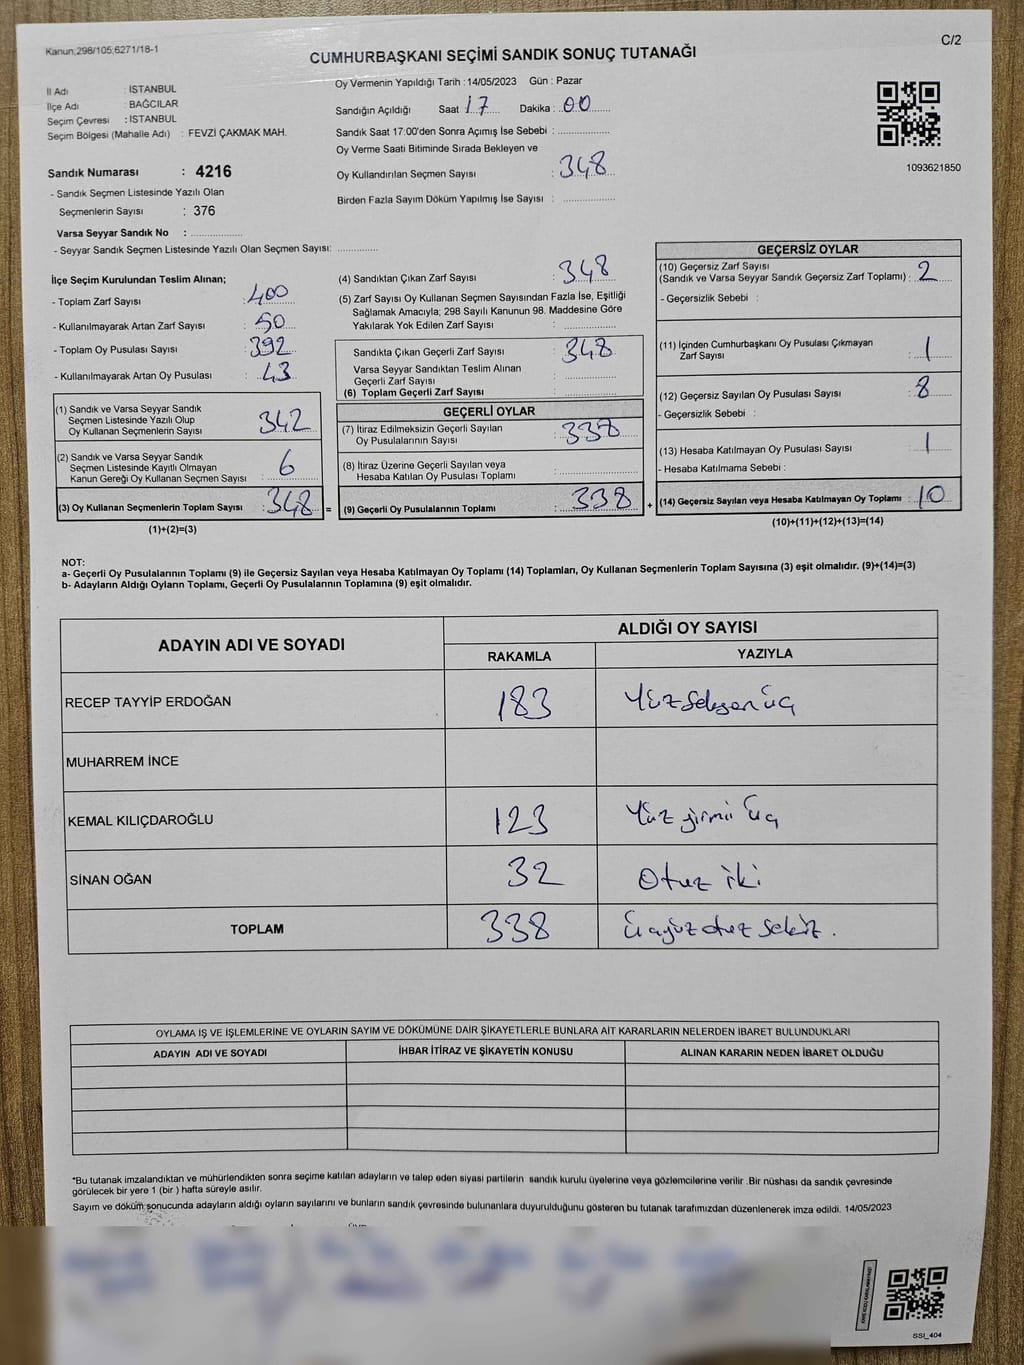 Kanun:298/105;6271/18-1
C/2
CUMHURBAŞKANI SEÇİMİ SANDIK SONUÇ TUTANAĞI
İl Adı : İSTANBUL
İlçe Adı : BAĞCILAR
Seçim Çevresi : İSTANBUL
Seçim Bölgesi (Mahalle Adı) : FEVZİ ÇAKMAK MAH.
Sandık Numarası : 4216
- Sandık Seçmen Listesinde Yazılı Olan
Seçmenlerin Sayısı : 376
Varsa Seyyar Sandık No : ..................
- Seyyar Sandık Seçmen Listesinde Yazılı Olan Seçmen Sayısı: ..............
Oy Vermenin Yapıldığı Tarih : 14/05/2023 Gün : Pazar
Sandığın Açıldığı Saat 17 Dakika : 00
Sandık Saat 17:00'den Sonra Açımış İse Sebebi : ..................
Oy Verme Saati Bitiminde Sırada Bekleyen ve
Oy Kullandırılan Seçmen Sayısı : 348
Birden Fazla Sayım Döküm Yapılmış İse Sayısı : ..................
1093621850
İlçe Seçim Kurulundan Teslim Alınan;
- Toplam Zarf Sayısı : 400
- Kullanılmayarak Artan Zarf Sayısı : 50
- Toplam Oy Pusulası Sayısı : 392
- Kullanılmayarak Artan Oy Pusulası : 43
(1) Sandık ve Varsa Seyyar Sandık
Seçmen Listesinde Yazılı Olup
Oy Kullanan Seçmenlerin Sayısı 342
(2) Sandık ve Varsa Seyyar Sandık
Seçmen Listesinde Kayıtlı Olmayan
Kanun Gereği Oy Kullanan Seçmen Sayısı : 6
(3) Oy Kullanan Seçmenlerin Toplam Sayısı : 348 =
(1)+(2)=(3)
(4) Sandıktan Çıkan Zarf Sayısı : 348
(5) Zarf Sayısı Oy Kullanan Seçmen Sayısından Fazla İse, Eşitliği
Sağlamak Amacıyla; 298 Sayılı Kanunun 98. Maddesine Göre
Yakılarak Yok Edilen Zarf Sayısı : ..................
Sandıkta Çıkan Geçerli Zarf Sayısı : 348
Varsa Seyyar Sandıktan Teslim Alınan
Geçerli Zarf Sayısı : ..................
(6) Toplam Geçerli Zarf Sayısı : ..................
GEÇERLİ OYLAR
(7) İtiraz Edilmeksizin Geçerli Sayılan
Oy Pusulalarının Sayısı : 338
(8) İtiraz Üzerine Geçerli Sayılan veya
Hesaba Katılan Oy Pusulası Toplamı : ..................
(9) Geçerli Oy Pusulalarının Toplamı : 338 +
GEÇERSİZ OYLAR
(10) Geçersiz Zarf Sayısı
(Sandık ve Varsa Seyyar Sandık Geçersiz Zarf Toplamı) : 2
- Geçersizlik Sebebi :
(11) İçinden Cumhurbaşkanı Oy Pusulası Çıkmayan
Zarf Sayısı : 1
(12) Geçersiz Sayılan Oy Pusulası Sayısı : 8
- Geçersizlik Sebebi :
(13) Hesaba Katılmayan Oy Pusulası Sayısı : 1
- Hesaba Katılmama Sebebi :
(14) Geçersiz Sayılan veya Hesaba Katılmayan Oy Toplamı : 10
(10)+(11)+(12)+(13)=(14)
NOT:
a- Geçerli Oy Pusulalarının Toplamı (9) ile Geçersiz Sayılan veya Hesaba Katılmayan Oy Toplamı (14) Toplamları, Oy Kullanan Seçmenlerin Toplam Sayısına (3) eşit olmalıdır. (9)+(14)=(3)
b- Adayların Aldığı Oyların Toplamı, Geçerli Oy Pusulalarının Toplamına (9) eşit olmalıdır.
ADAYIN ADI VE SOYADI ALDIĞI OY SAYISI
RAKAMLA YAZIYLA
RECEP TAYYİP ERDOĞAN 183 Yüzseksen üç
MUHARREM İNCE
KEMAL KILIÇDAROĞLU 123 Yüz yirmi üç
SİNAN OĞAN 32 Otuz iki
TOPLAM 338 Üçyüz otuz sekiz.
OYLAMA İŞ VE İŞLEMLERİNE VE OYLARIN SAYIM VE DÖKÜMÜNE DAİR ŞİKAYETLERLE BUNLARA AİT KARARLARIN NELERDEN İBARET BULUNDUKLARI
ADAYIN ADI VE SOYADI İHBAR İTİRAZ VE ŞİKAYETİN KONUSU ALINAN KARARIN NEDEN İBARET OLDUĞU
*Bu tutanak imzalandıktan ve mühürlendikten sonra seçime katılan adayların ve talep eden siyasi partilerin sandık kurulu üyelerine veya gözlemcilerine verilir .Bir nüshası da sandık çevresinde
görülecek bir yere 1 (bir ) hafta süreyle asılır.
Sayım ve döküm sonucunda adayların aldığı oyların sayılarını ve bunların sandık çevresinde bulunanlara duyurulduğunu gösteren bu tutanak tarafımızdan düzenlenerek imza edildi. 14/05/2023
SSI_404